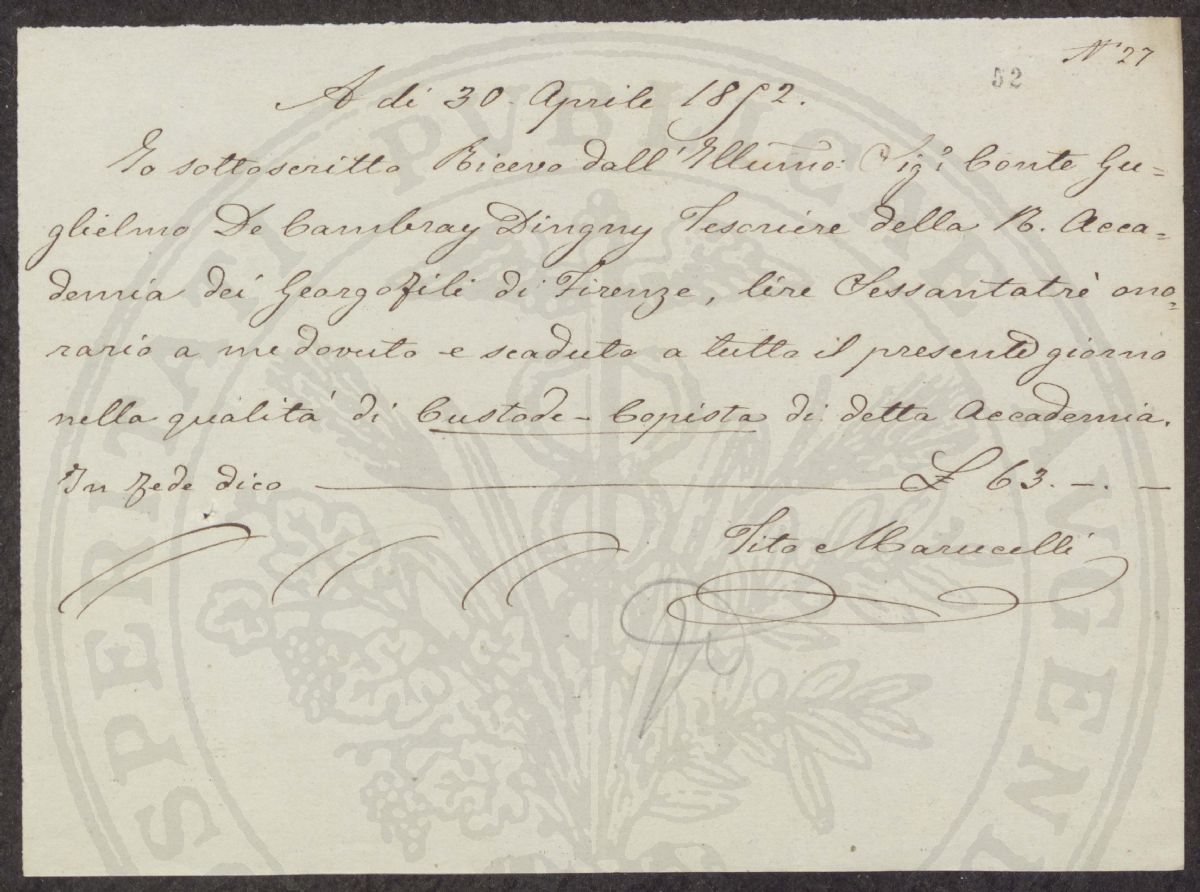 N° 27
52
A di 30. Aprile 1852.
Io sottoscritto Ricevo dall' Illumo: Sigr Conte Gu=
glielmo De Cambray Dingny Tesoriere della R. Acca=
demia dei Georgofili di Firenze, lire Sessantatrè ono=
rario a me dovuto e scaduto a tutto il presente giorno
nella qualità di Custode-Copista di detta Accademia.
In fede dico ——— £ 63. –. –
Tito Marucelli
PROSPERITATI PUBLICAE AUGENDAE